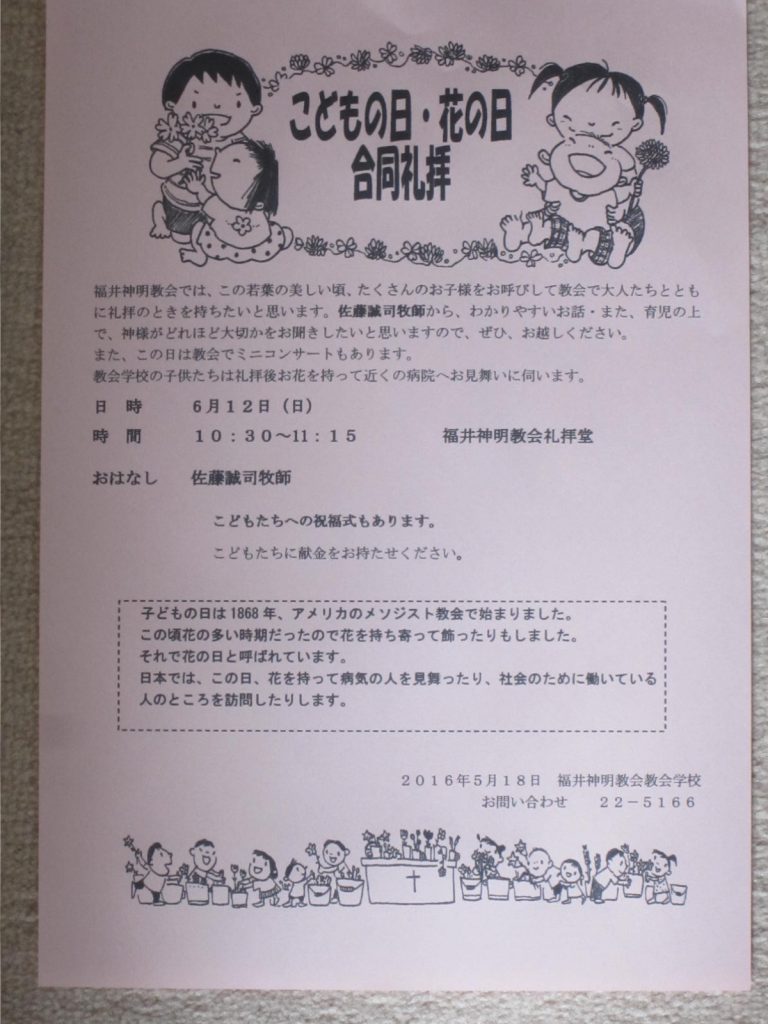 こどもの日・花の日
合同礼拝
福井神明教会では、この若葉の美しい頃、たくさんのお子様をお呼びして教会で大人たちととも
に礼拝のときを持ちたいと思います。佐藤誠司牧師から、わかりやすいお話・また、育児の上
で、神様がどれほど大切かをお聞きしたいと思いますので、ぜひ、お越しください。
また、この日は教会でミニコンサートもあります。
教会学校の子供たちは礼拝後お花を持って近くの病院へお見舞いに伺います。
日　時　　６月１２日（日）
時　間　　１０：３０～11：１５　　　　福井神明教会礼拝堂
おはなし　　佐藤誠司牧師
こどもたちへの祝福式もあります。
こどもたちに献金をお持たせください。
子どもの日は 1868 年、アメリカのメソジスト教会で始まりました。
この頃花の多い時期だったので花を持ち寄って飾ったりもしました。
それで花の日と呼ばれています。
日本では、この日、花を持って病気の人を見舞ったり、社会のために働いている
人のところを訪問したりします。
２０１６年５月１８日　福井神明教会教会学校
お問い合わせ　　２２－５１６６